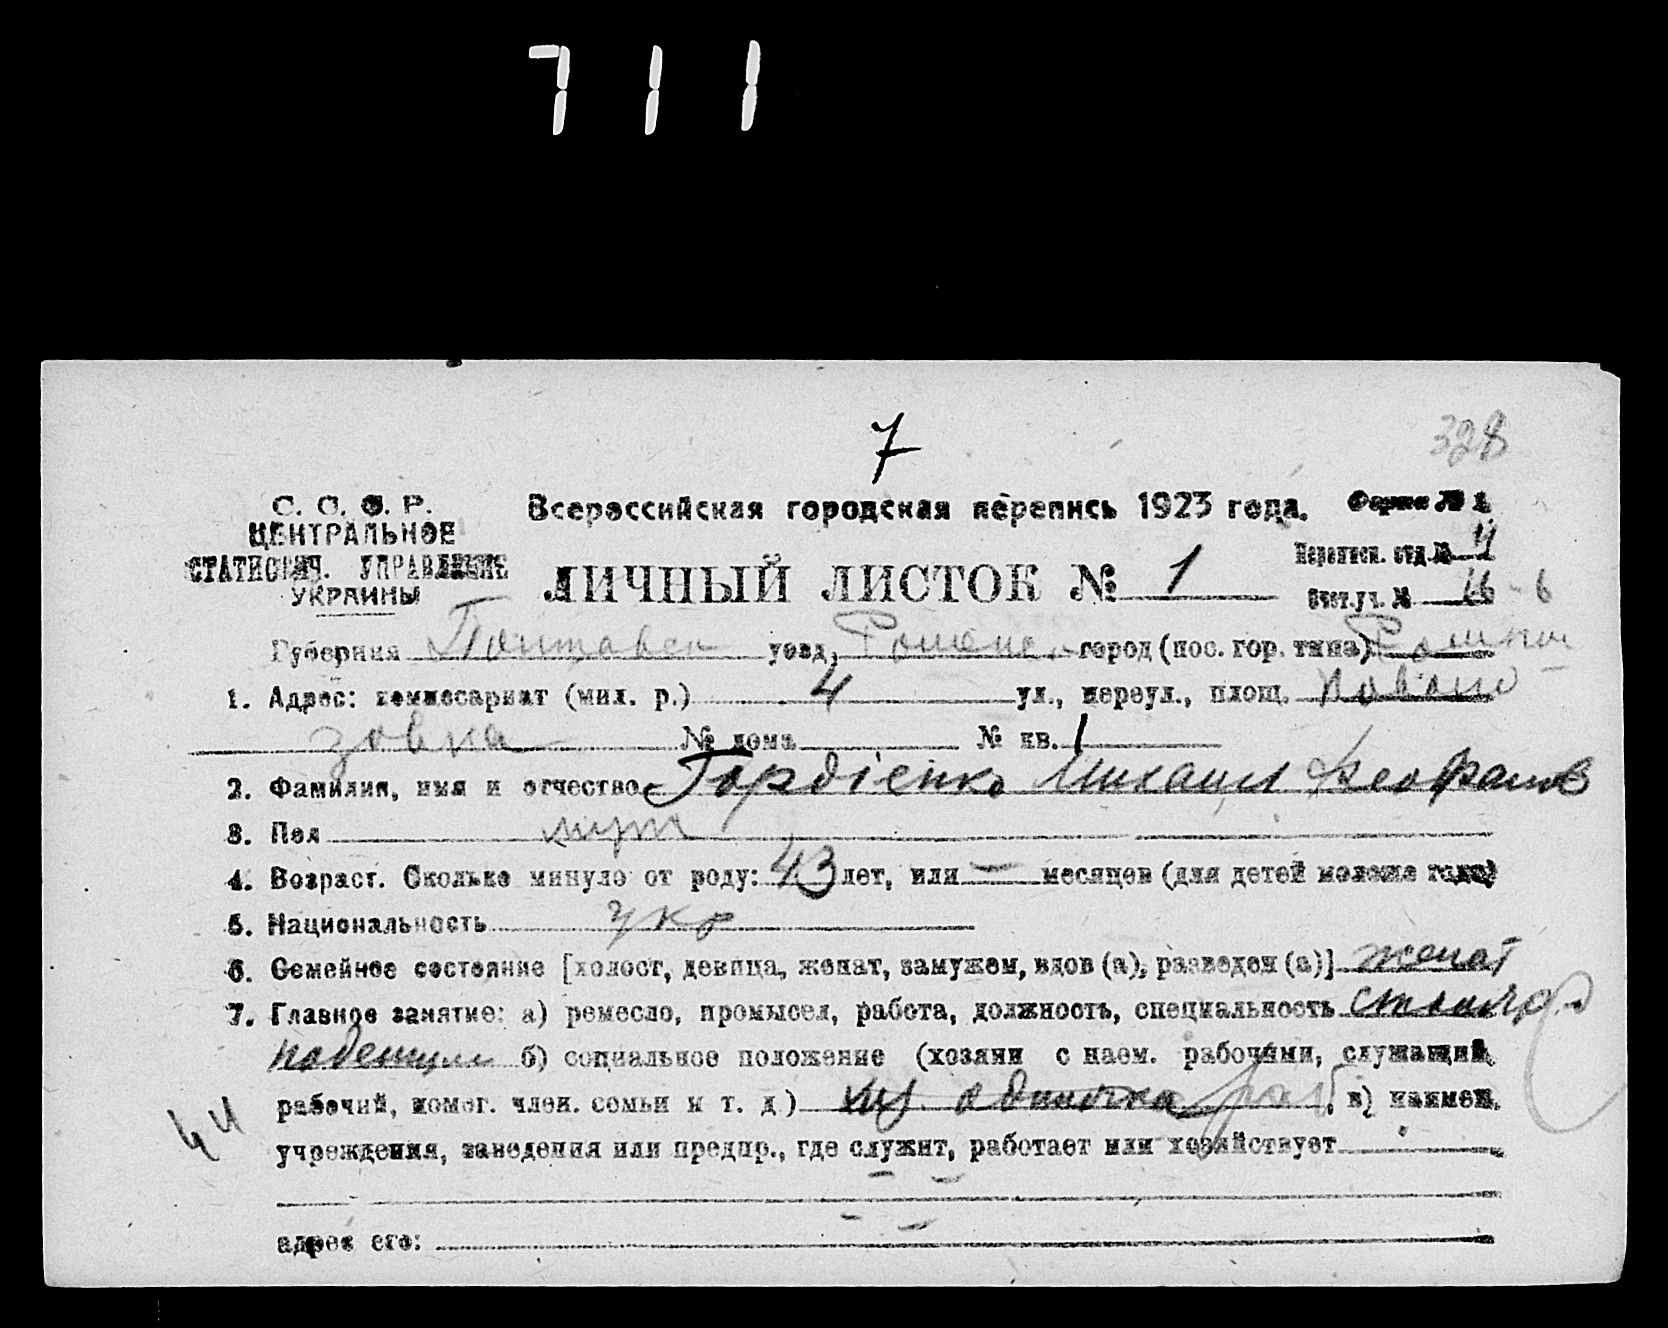 711
7
328
С. С. С. Р. Всероссийская городская перепись 1923 года. Форма № 1
ЦЕНТРАЛЬНОЕ
СТАТИСТИЧ. УПРАВЛЕНИЕ
УКРАИНЫ
Переписн. отд. №
ЛИЧНЫЙ ЛИСТОК № 1
Счет. уч. № 16-6
Губерния Полтавск уезд, Роменск город (пос. гор. типа)
1. Адрес: комиссариат (мил. р.) 4 ул., переул., площ.
№ дома № кв. 1
2. Фамилия, имя и отчество Гордіенко Михаил Феофанов
3. Пол муж
4. Возраст. Сколько минуло от роду: 43 лет, или — месяцев (для детей моложе года)
5. Национальность укр
6. Семейное состояние [холост, девица, женат, замужем, вдов (а), разведен (а)] женат
7. Главное занятие: а) ремесло, промысел, работа, должность, специальность столяр
поденщик б) социальное положение (хозяин с наем. рабочими, служащий,
рабочий, помог. член. семьи и т. д.) хоз. одиночка раб, в) наимен.
44
учреждения, заведения или предпр., где служит, работает или хозяйствует
адрес его: